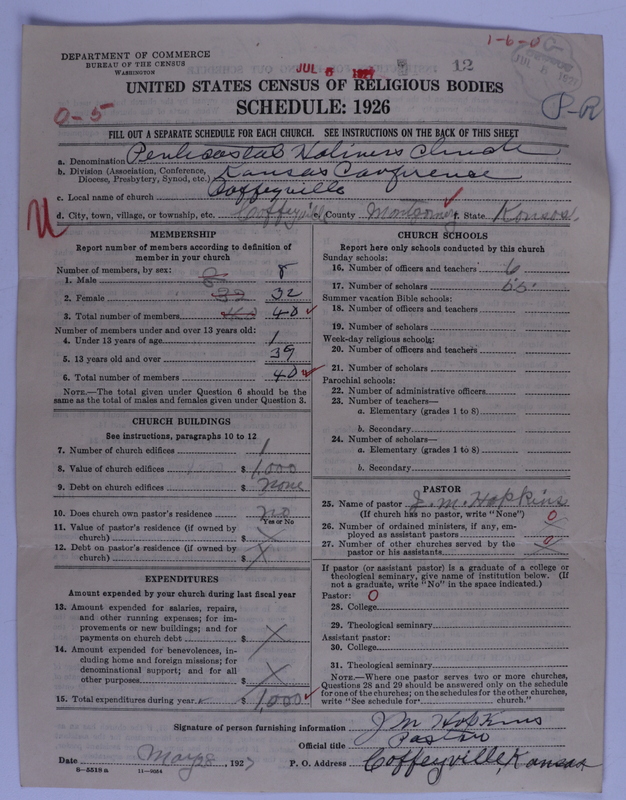 1-6-0
DEPARTMENT OF COMMERCE
BUREAU OF THE CENSUS
WASHINGTON
JUL 5 1927 12
UNITED STATES CENSUS OF RELIGIOUS BODIES
SCHEDULE: 1926
0-5
P-R
FILL OUT A SEPARATE SCHEDULE FOR EACH CHURCH. SEE INSTRUCTIONS ON THE BACK OF THIS SHEET
a. Denomination Pentecostal Holiness Church
b. Division (Association, Conference, Kansas Conference
Diocese, Presbytery, Synod, etc.)
c. Local name of church Coffeyville
d. City, town, village, or township, etc. Coffeyville e. County Montgomery f. State Kansas
MEMBERSHIP
Report number of members according to definition of
member in your church
Number of members, by sex:
1. Male 8 8
2. Female 32 32
3. Total number of members 40 40
Number of members under and over 13 years old:
4. Under 13 years of age 1
5. 13 years old and over 39
6. Total number of members 40
NOTE.—The total given under Question 6 should be
same as the total of males and females given under Question 3.
CHURCH BUILDINGS
See instructions, paragraphs 10 to 12
7. Number of church edifices 1
8. Value of church edifices $ 1,000
9. Debt on church edifices $ None
10. Does church own pastor's residence no
Yes or No
11. Value of pastor's residence (if owned by
church) $ X
12. Debt on pastor's residence (if owned by
church) $ X
EXPENDITURES
Amount expended by your church during last fiscal year
13. Amount expended for salaries, repairs,
and other running expenses; for im-
provements or new buildings; and for
payments on church debt $ X
14. Amount expended for benevolences, in-
cluding home and foreign missions; for
denominational support; and for all
other purposes $ X
15. Total expenditures during year $ 1,000
CHURCH SCHOOLS
Report here only schools conducted by this church
Sunday schools:
16. Number of officers and teachers 6
17. Number of scholars 65
Summer vacation Bible schools:
18. Number of officers and teachers
19. Number of scholars
Week-day religious schools:
20. Number of officers and teachers
21. Number of scholars
Parochial schools:
22. Number of administrative officers
23. Number of teachers—
a. Elementary (grades 1 to 8)
b. Secondary
24. Number of scholars—
a. Elementary (grades 1 to 8)
b. Secondary
PASTOR
25. Name of pastor J. M. Hopkins
(If church has no pastor, write "None")
26. Number of ordained ministers, if any, em-
ployed as assistant pastors 0
27. Number of other churches served by the
pastor or his assistants 0
If pastor (or assistant pastor) is a graduate of a college or
theological seminary, give name of institution below. (If
not a graduate, write "No" in the space indicated.)
Pastor: 0
28. College
29. Theological seminary
Assistant pastor:
30. College
31. Theological seminary
NOTE.—Where one pastor serves two or more churches,
Questions 28 and 29 should be answered only on the schedule
for one of the churches; on the schedules for the other churches,
write "See schedule for church."
Signature of person furnishing information J M Hopkins
Official title Pastor
Date , 1927 P. O. Address Coffeyville, Kansas
8—5518 a 11—9054